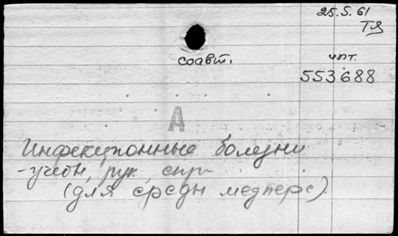 25.5.61
ТЯ
соавт.
чпт.
553688
А
Инфекционные болезни
-учебн, рук, спр
(для средн медперс)